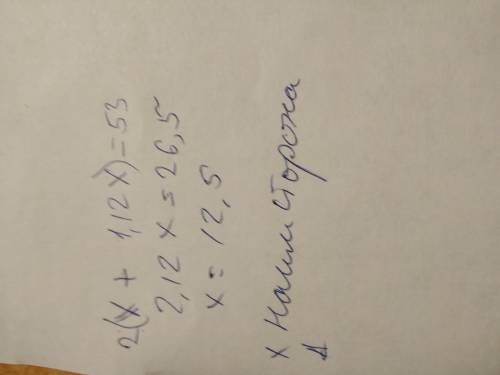 2(x + 1,12x) = 53
2,12x = 26,5
x = 12,5
x наим сторона
Δ